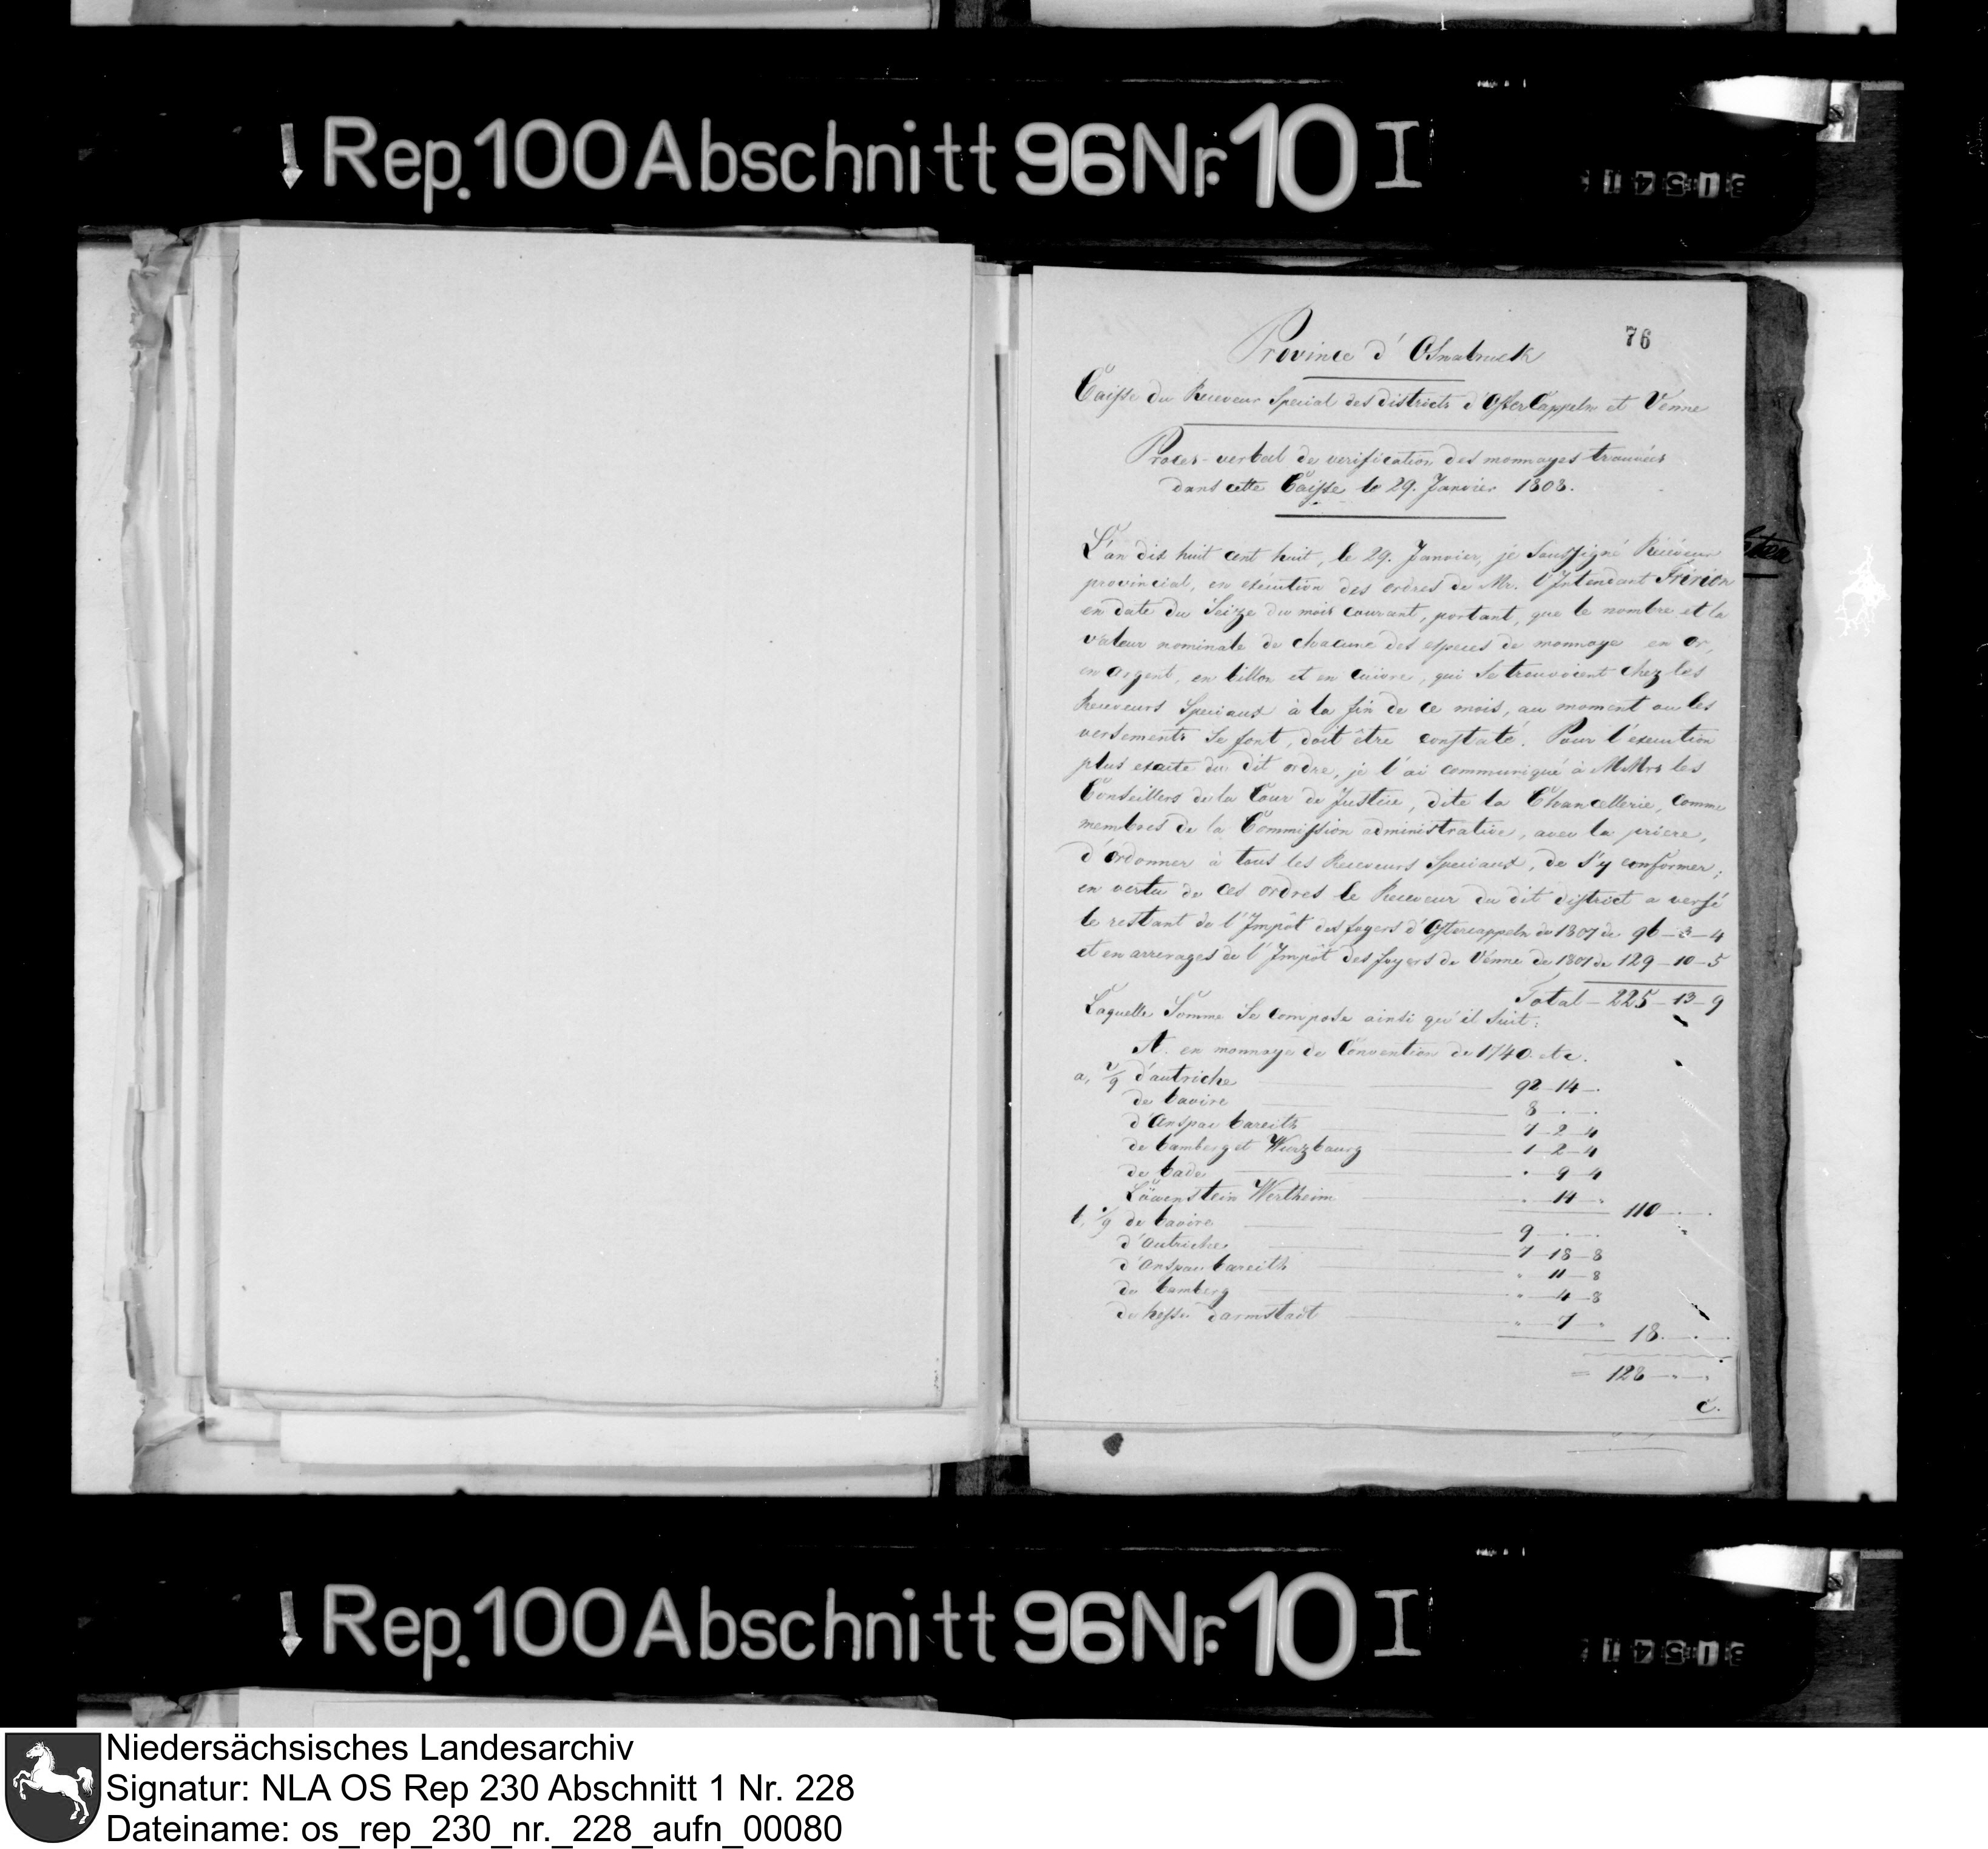 Rep. 100 Abschnitt 96 Nr. 10 I
76
Province d' Osnabruck
Caisse du Receveur Special des districts d'OsterCappeln et Venne
Proces-verbal de verification des monnayes trouvées
dans cette Caisse le 29. Janvier 1808.
L'an dix huit cent huit, le 29. Janvier, je Soussigné Récéveur
provincial, en exécution des ordres de Mr. l'Intendant Fririon
en date du Seize du mois courant, portant, que le nombre et la
valeur nominale de chacune des especes de monnaye en or,
en argent, en billon et en cuivre, qui se trouvoient chez les
Receveurs Speciaux à la fin de ce mois, au moment ou les
versements se font, doit être constaté. Pour l'execution
plus exacte du dit ordre, je l'ai communiqué à MMrs les
Conseillers de la Cour de Justice, dite la Chancellerie, comme
membres de la Commission administrative, avec la priere,
d'ordonner à tous les Receveurs Speciaux, de s'y conformer;
en vertu de ces ordres le Receveur du dit district a versé
le restant de l'Impôt des foyers d'Ostercappeln de 1807 de 96-3-4
et en arrerages de l'Impôt des foyers de Venne de 1807 de 129-10-5
Total - 225-13-9
Laquelle Somme se compose ainsi qu'il suit:
A. en monnaye de Convention de 1740. etc.
a, 2/9 d'autriche 92-14-.
de baviere 8-.-.
d'Anspac bareith 7-2-4
de bamberg et Wurzbourg 1-2-4
de bade . 9-4
Löwenstein Wertheim . 14 .
110-.-.
b, 1/9 de baviere 9-.-.
d'autriche 7-18-8
d'Anspac bareith " 11-8
de bamberg " 4-8
de hesse darmstadt " 7 "
18.-.-.
= 128-.-.
C.
Rep. 100 Abschnitt 96 Nr. 10 I
Niedersächsisches Landesarchiv
Signatur: NLA OS Rep 230 Abschnitt 1 Nr. 228
Dateiname: os_rep_230_nr._228_aufn_00080